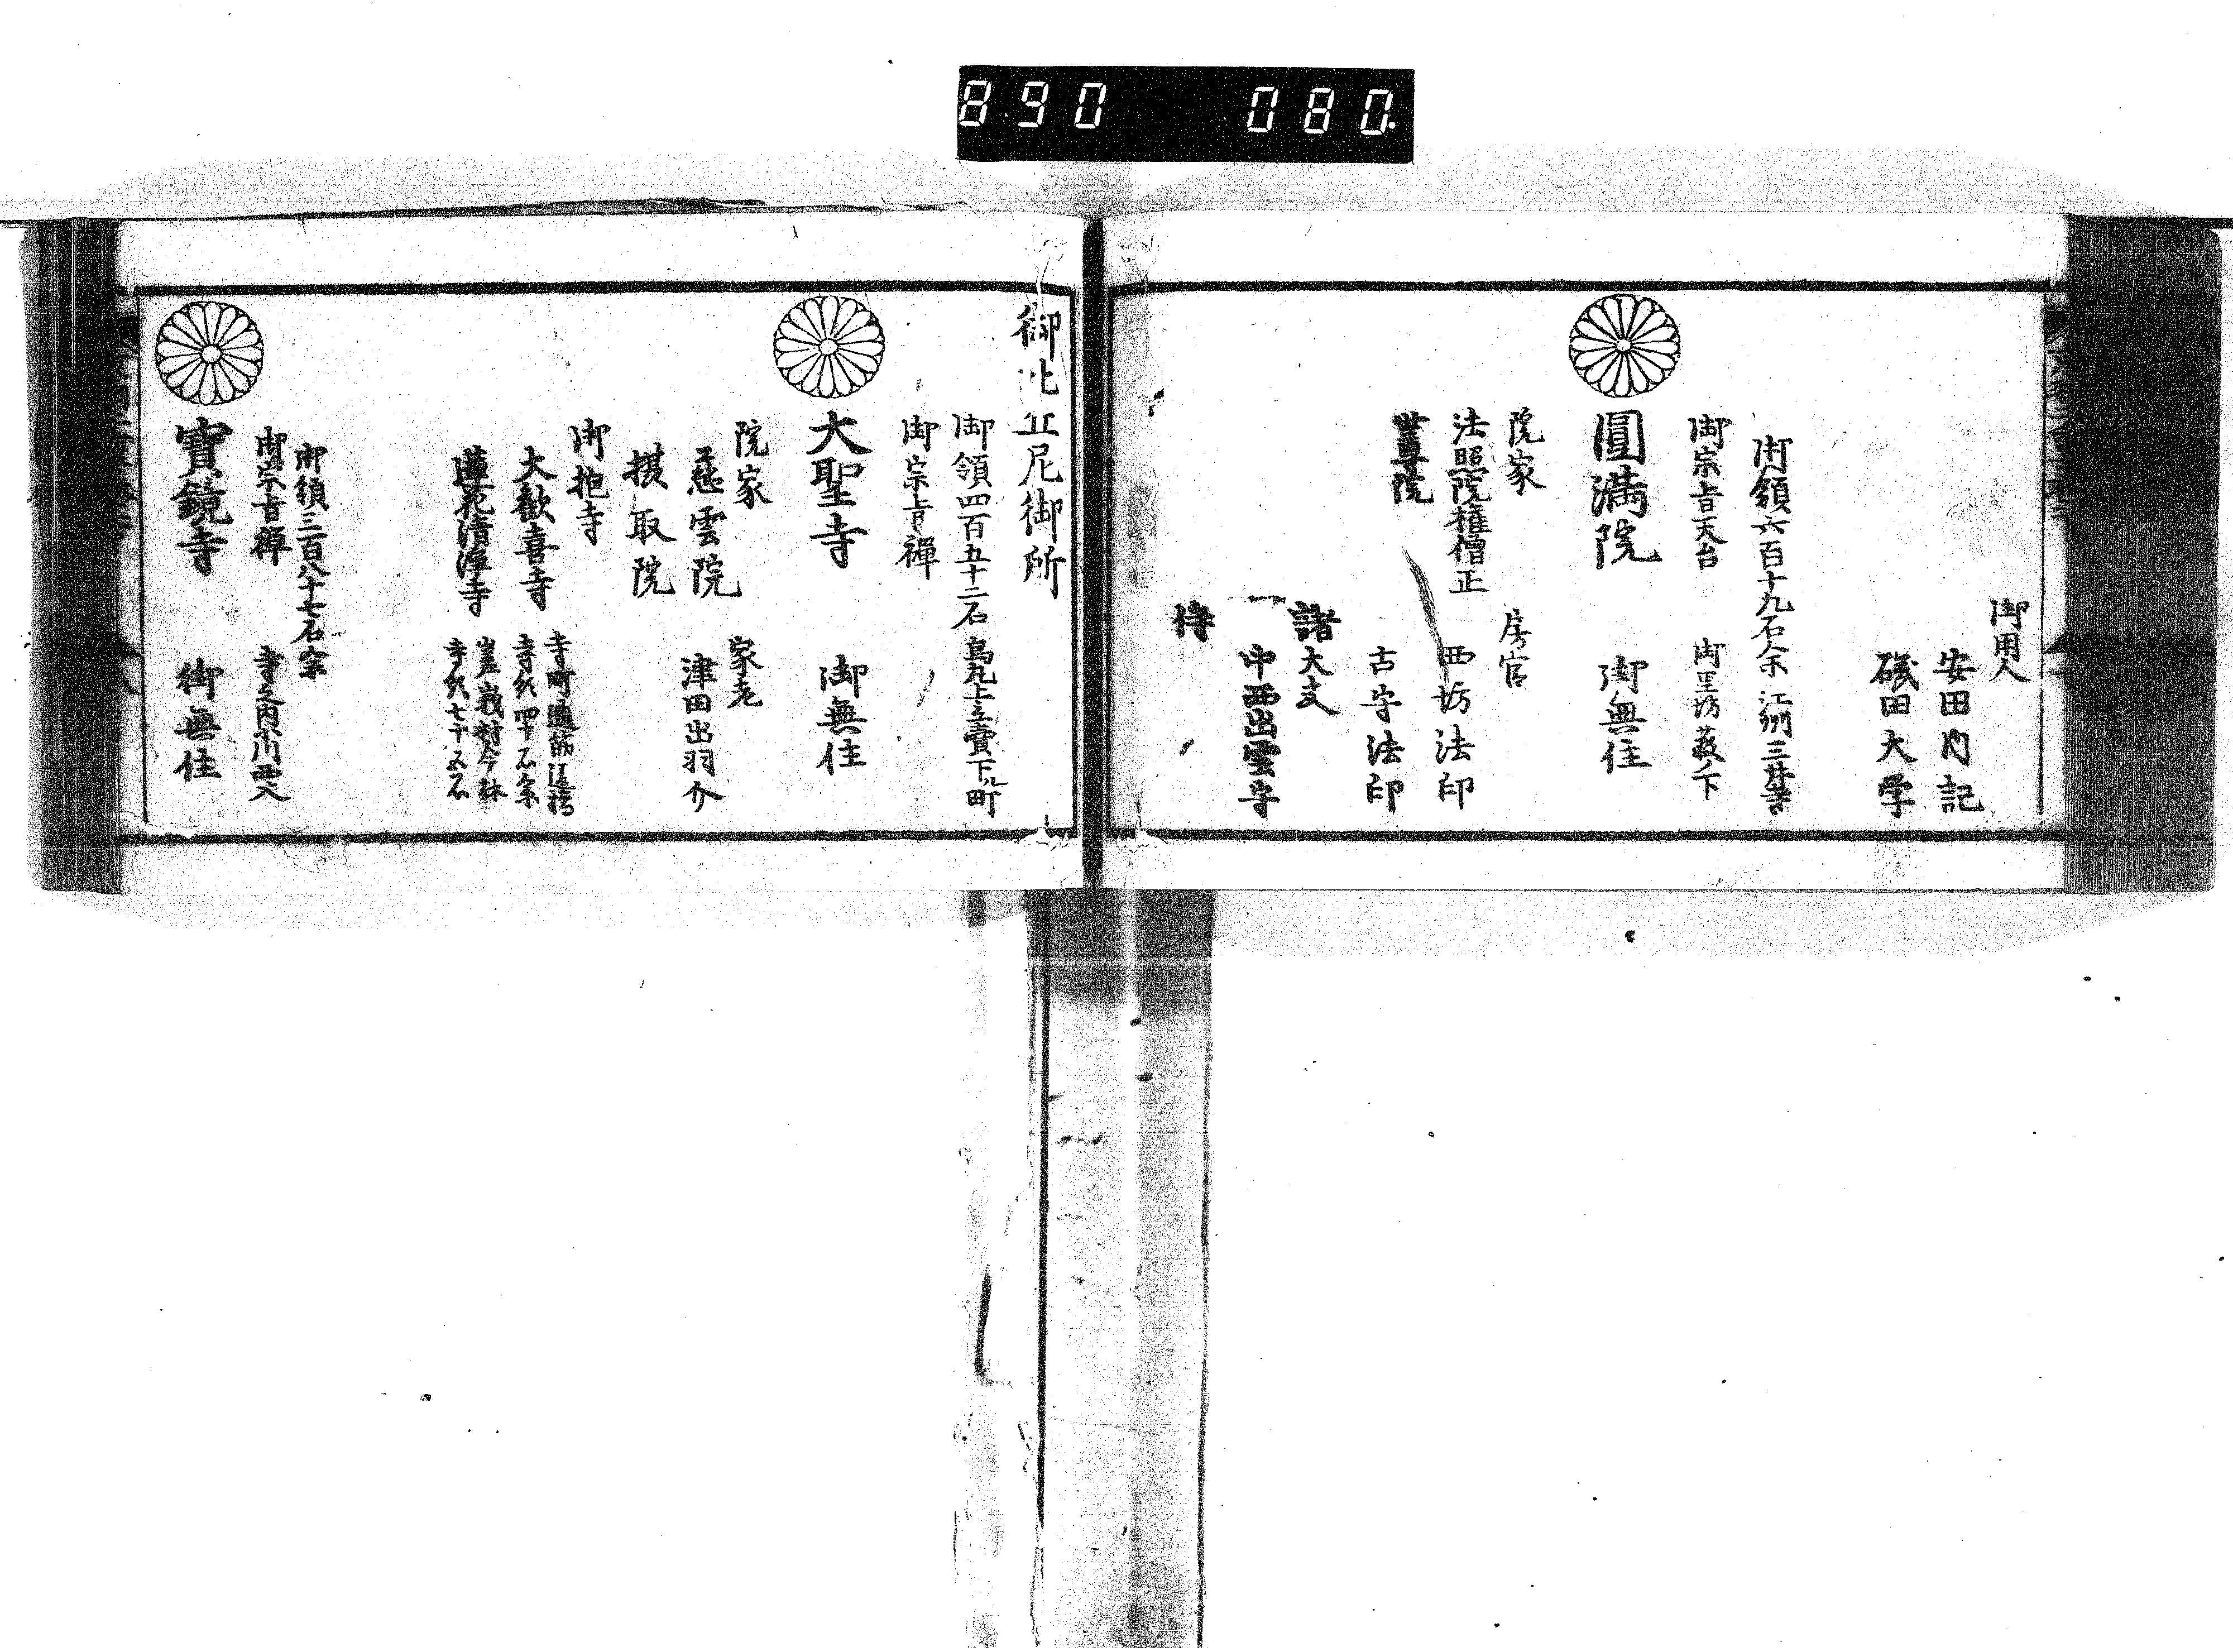 890 080.
御用人
安田内記
磯田大学
御領六百十九石余 江州三井寺
御宗旨天台 御里坊藪ノ下
圓満院 御無住
院家 房官
法照院権僧正 西坊法印
豊院 古守法印
諸大夫
中西出雲守
侍
御比丘尼御所
御領四百五十二石 烏丸上立賣下ル町
御宗旨禅
大聖寺 御無住
院家 家老
慈雲院 津田出羽介
摂取院
御抱寺
大歓喜寺 寺町通
寺領四十石余
蓮花清浄寺 嵯峨村今林
寺領七十五石
御領三百八十七石余
御宗旨禅 寺之内小川西へ入
寶鏡寺 御無住